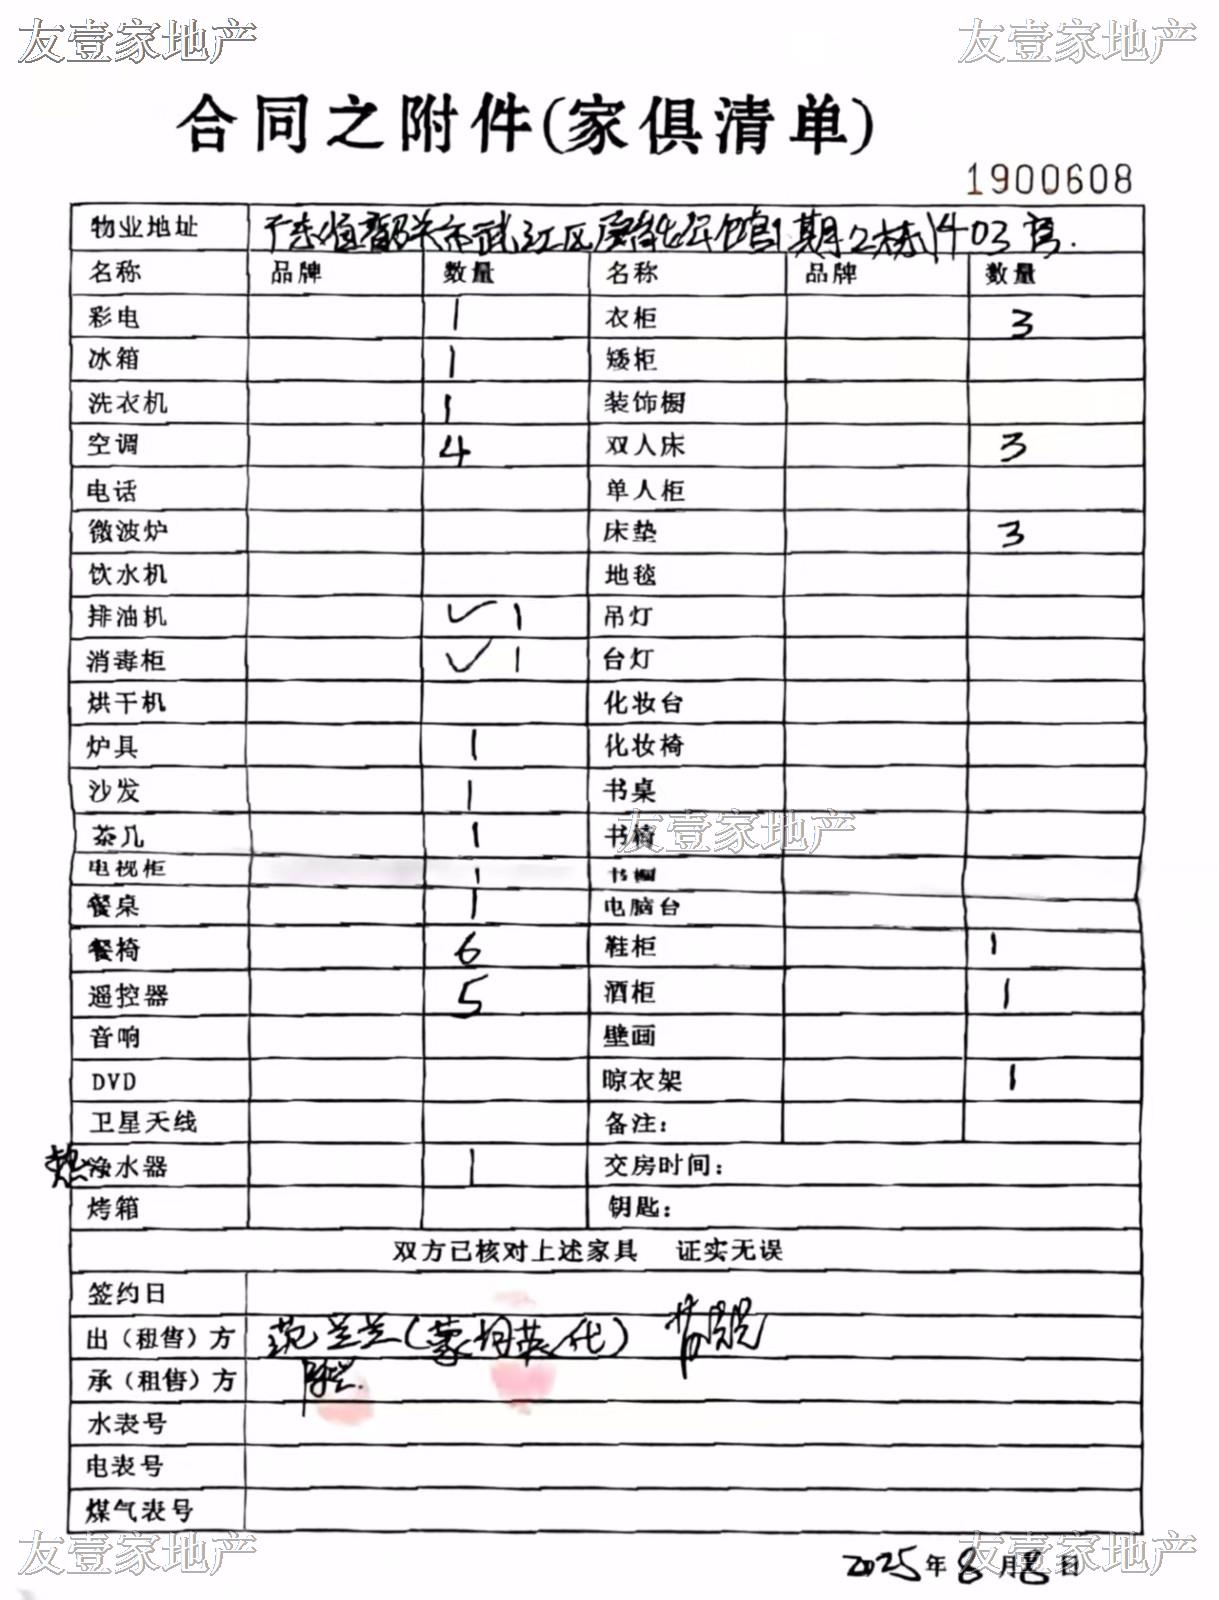 友壹家地产 友壹家地产
合同之附件(家俱清单)
1900608
物业地址 广东省韶关市武江区 期2栋1403房.
名称 品牌 数量 名称 品牌 数量
彩电 1 衣柜 3
冰箱 1 矮柜
洗衣机 1 装饰橱
空调 4 双人床 3
电话 单人柜
微波炉 床垫 3
饮水机 地毯
排油机 ✓1 吊灯
消毒柜 ✓1 台灯
烘干机 化妆台
炉具 1 化妆椅
沙发 1 书桌
茶几 1 书椅
友壹家地产
电视柜 1 书橱
餐桌 1 电脑台
餐椅 6 鞋柜 1
遥控器 5 酒柜 1
音响 壁画
DVD 晾衣架 1
卫星天线 备注:
热净水器 1 交房时间:
烤箱 钥匙:
双方已核对上述家具 证实无误
签约日
出(租售)方 范兰兰(蒙 英代)
承(租售)方
水表号
电表号
煤气表号
友壹家地产 友壹家地产
2025年8月8日